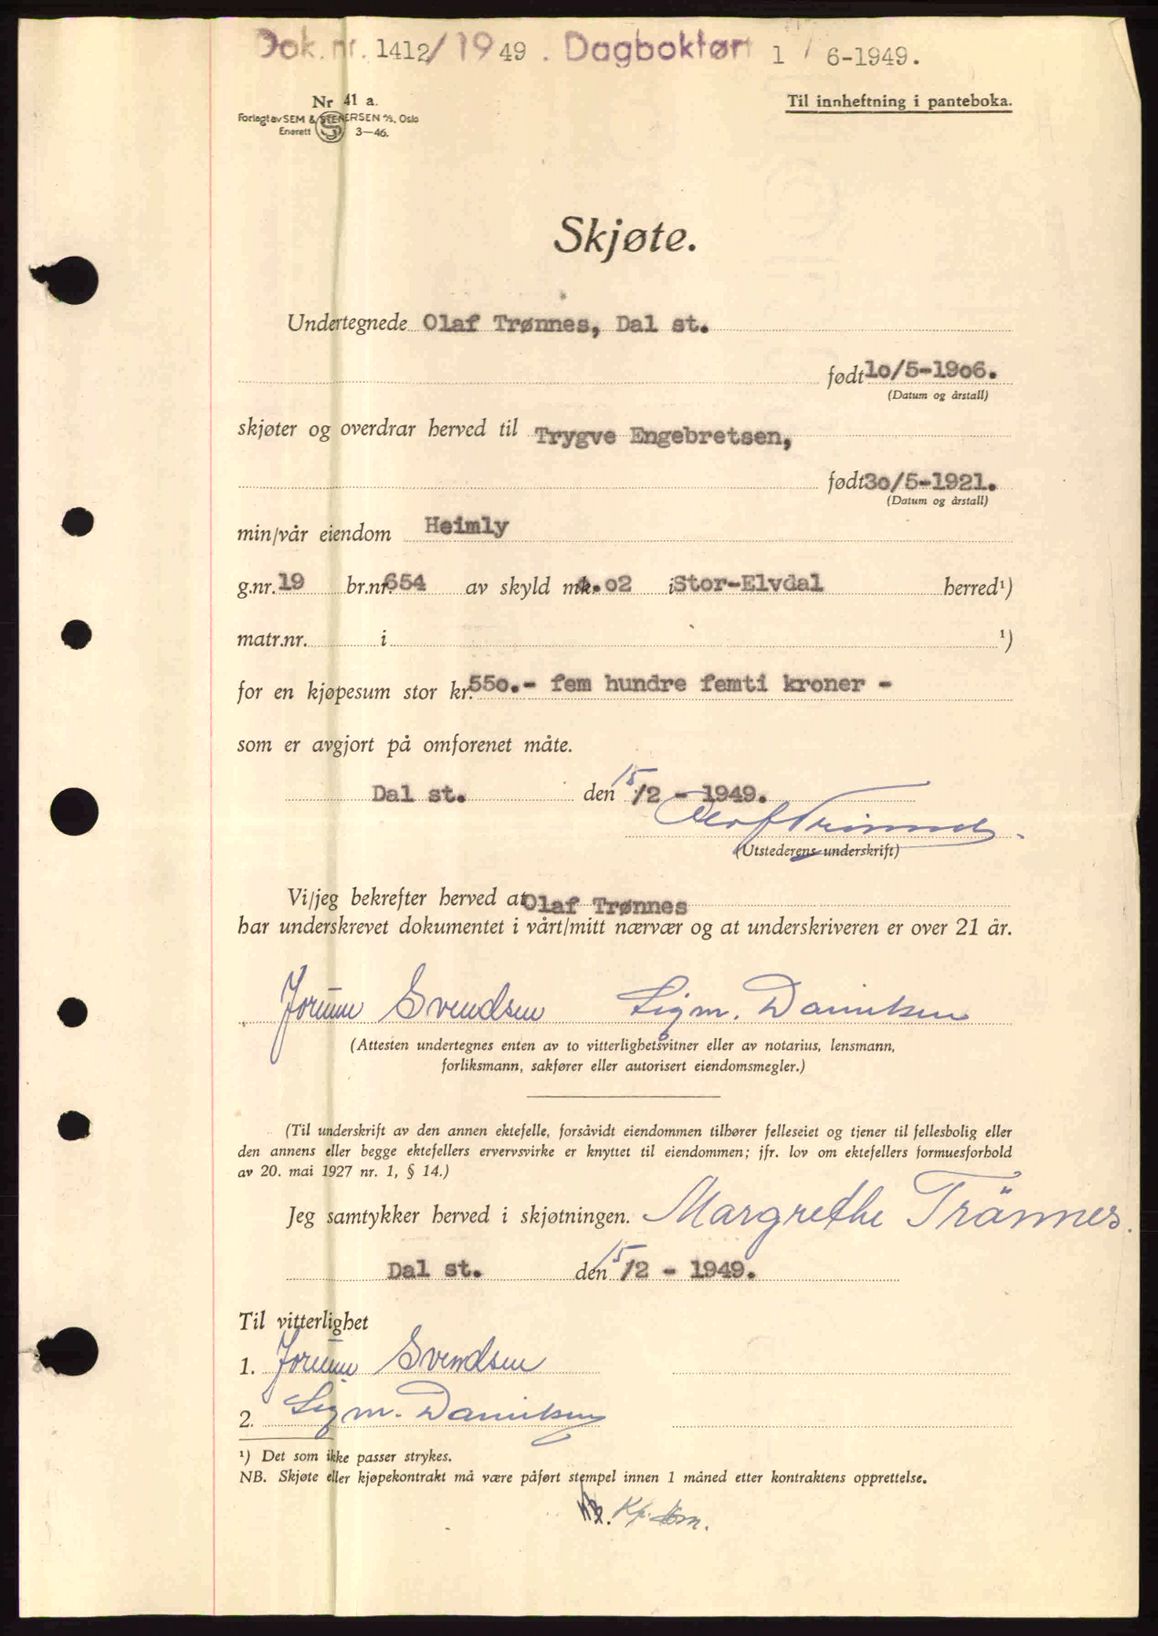 Dok. nr. 1412/1949. Dagbokført 1/6-1949.
Nr 41 a.
Forlagt av SEM & STENERSEN A/S, Oslo
Enerett S 3—46.
Til innheftning i panteboka.
Skjøte.
Undertegnede Olaf Trønnes, Dal st.
født 10/5-1906.
(Datum og årstall)
skjøter og overdrar herved til Trygve Engebretsen,
født 30/5-1921.
(Datum og årstall)
min/vår eiendom Heimly
g.nr. 19 br.nr. 654 av skyld mk. 02 i Stor-Elvdal herred¹)
matr.nr. i ¹)
for en kjøpesum stor kr. 550.- fem hundre femti kroner -
som er avgjort på omforenet måte.
Dal st. den 15/2 - 1949.
Olaf Trønnes.
(Utstederens underskrift)
Vi/jeg bekrefter herved at Olaf Trønnes
har underskrevet dokumentet i vårt/mitt nærvær og at underskriveren er over 21 år.
Jorunn Svendsen Sigm. Danielsen
(Attesten undertegnes enten av to vitterlighetsvitner eller av notarius, lensmann,
forliksmann, sakfører eller autorisert eiendomsmegler.)
(Til underskrift av den annen ektefelle, forsåvidt eiendommen tilhører felleseiet og tjener til fellesbolig eller
den annens eller begge ektefellers ervervsvirke er knyttet til eiendommen; jfr. lov om ektefellers formuesforhold
av 20. mai 1927 nr. 1, § 14.)
Jeg samtykker herved i skjøtningen. Margrethe Trännes.
Dal st. den 15/2 - 1949.
Til vitterlighet
1. Jorunn Svendsen
2. Sigm. Danielsen
¹) Det som ikke passer strykes.
NB. Skjøte eller kjøpekontrakt må være påført stempel innen 1 måned etter kontraktens opprettelse.